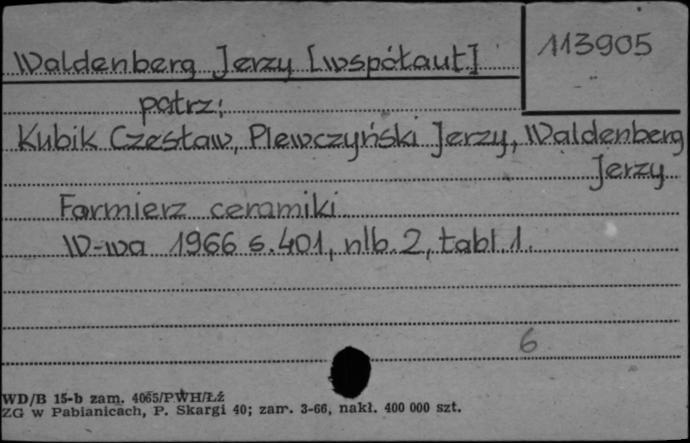 Waldenberg Jerzy [współaut]
113905
patrz:
Kubik Czesław, Plewczyński Jerzy, Waldenberg
Jerzy
Formierz ceramiki
W-wa 1966 s. 401, nlb. 2, tabl 1.
6
WD/B 15-b zam. 4065/PWH/Łź
ZG w Pabianicach, P. Skargi 40; zam. 3-66, nakł. 400 000 szt.